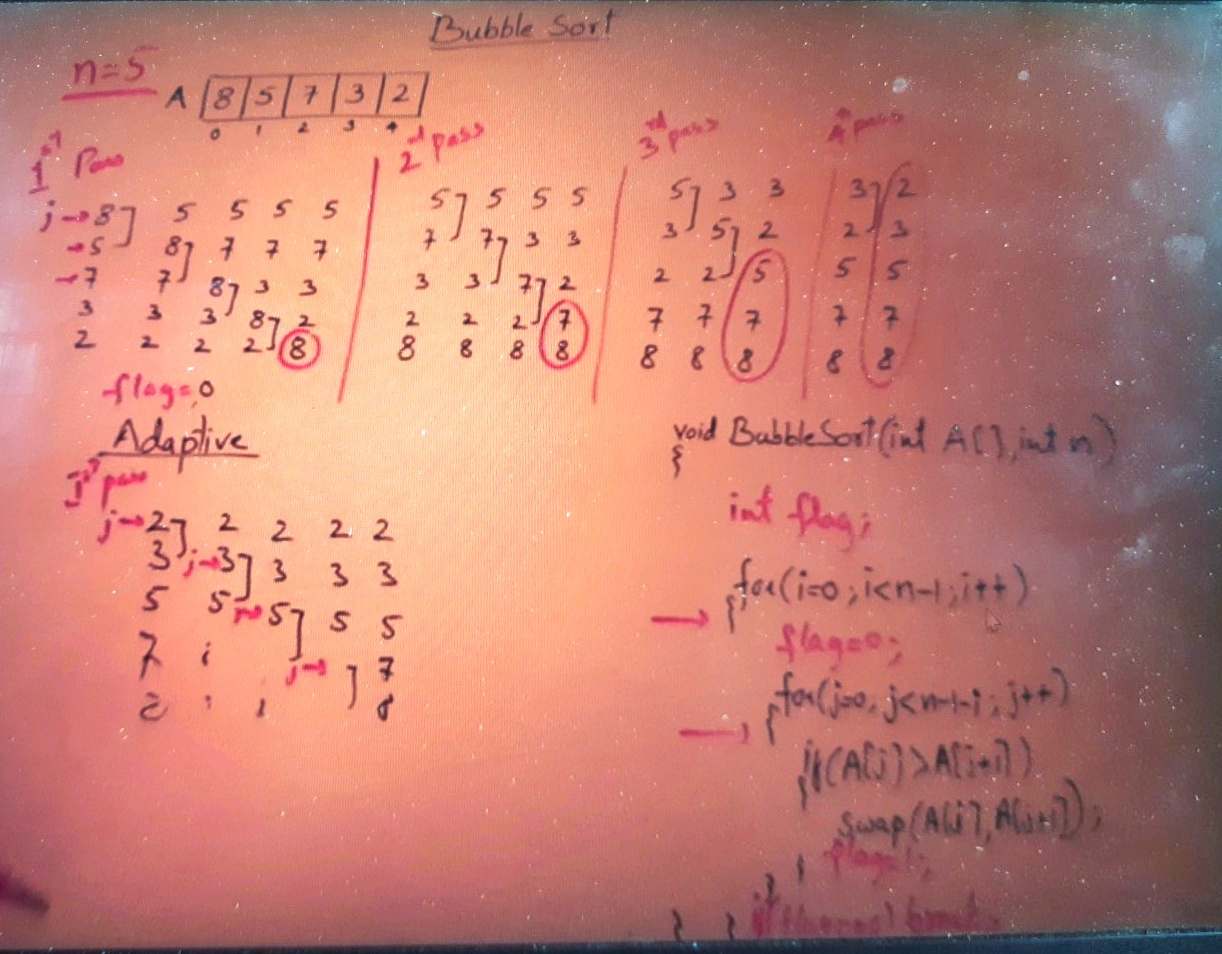 Bubble Sort
n=5
A 8 5 7 3 2
0 1 2 3 4
1st Pass
j→8 5 5 5 5
→5 8 7 7 7
→7 7 8 3 3
3 3 3 8 2
2 2 2 2 8
flag=0
2nd pass
5 5 5 5
7 7 3 3
3 3 7 2
2 2 2 7
8 8 8 8
3rd pass
5 3 3
3 5 2
2 2 5
7 7 7
8 8 8
4th pass
3 2
2 3
5 5
7 7
8 8
Adaptive
1st pass
j→2 2 2 2 2
3 j→3 3 3 3
5 5 →5 5 5
7 j→ 7
8
void BubbleSort(int A[],int n)
{
int flag;
for(i=0;i<n-1;i++)
{
flag=0;
for(j=0;j<n-1-i;j++)
{
if(A[j]>A[j+1])
{
swap(A[j],A[j+1]);
flag=1;
}
}
if(flag==0) break;
}
}